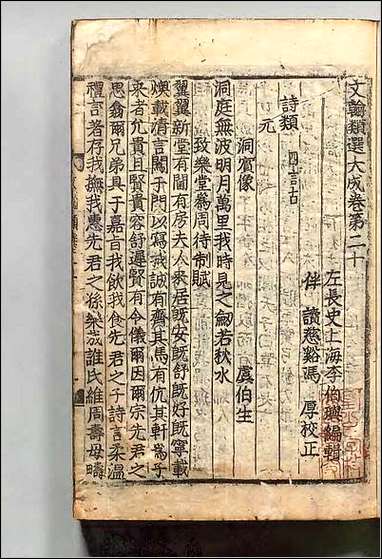 文翰類選大成卷第二十
左長史上海李伯璵編輯
伴讀慈谿馮厚校正
詩類
四言古
元
洞賓像
虞伯生
洞庭無波明月萬里我時見之劒若秋水
致樂堂爲周待制賦
翼翼新堂有閫有房夫人來居旣安旣舒旣好旣寧載
燠載清言閟于門以寫我誠有齊其馬有伉其軒爲予
來者尤貴且賢貴容舒遲賢有令儀爾因爾宗先君之
思翁爾兄弟具于嘉旨我飲我食先君之子詩言柔温
禮言若存我撫我惠先君之孫樂哉誰氏維周壽母疇